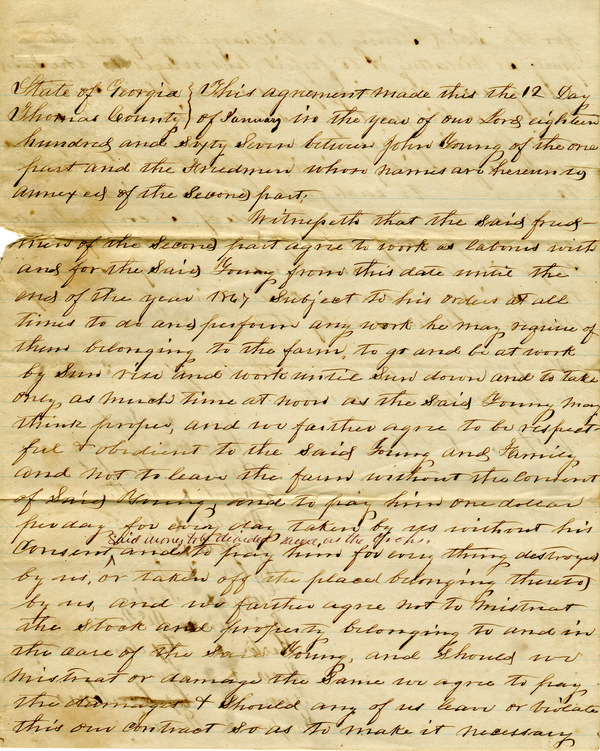 State of Georgia } This agreement made this the 12 Day
Thomas County } of January in the year of our Lord eighteen
hundred and sixty Seven between John Young of the one
part and the Freedmen whose names are hereunto
annexed of the Second part;
Witnesseth that the said freed-
men of the Second part agree to work as labores with
and for the Said Young from this date until the
end of the year 1867 Subject to his orders at all
times to do and perform any work he may require of
them belonging to the farm, to go and be at work
by Sun rise and work until Sun down and to take
only as much time at noon as the Said Young may
think proper, and we farther agree to be respect-
ful & obedient to the Said Young and Family
and not to leave the farm without the Consent
of Said Young and to pay him one dollar
per day for every day taken by us without his
Said money to be
Consent and to pay him for every thing destroyed
by us, or taken off the place belonging thereto
by us, and we farther agree not to mistreat
the Stock and property belonging to and in
the care of the Said Young, and Should we
mistreat or damage the Same we agree to pay
the damages & Should any of us leave or violate
this our contract so as to make it necessary